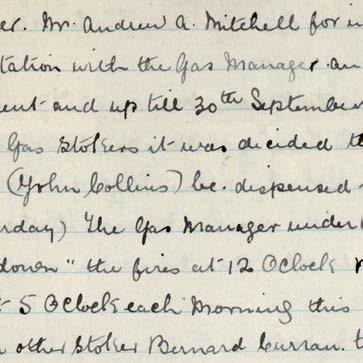 er. Mr. Andrew A. Mitchell for i
tation with the Gas Manager an
ent and up till 30th September
Gas Stokers it was decided t
(John Collins) be dispensed
rday) The Gas Manager under
down" the fires at 12 OClock
5 OClock each Morning this
other Stoker Bernard Curran. t